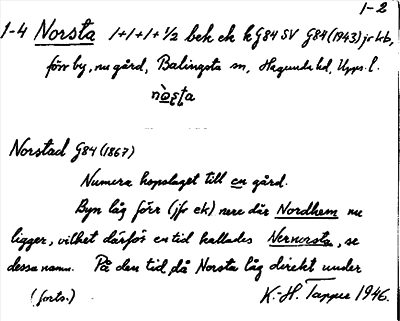 1-2
1-4 Norsta 1+1+1+½ bek ek kG84 SV G84(1943) jr kb,
förr by, nu gård, Balingsta sn, Hagunda hd, Upps. l.
nòs̩ta
Norstad G84 (1867)
Numera hopslaget till en gård.
Byn låg förr (jfr ek) nere där Nordhem nu
ligger, vilket därför en tid kallades Nernorsta, se
dessa namn. På den tid, då Norsta låg direkt under
(forts.) K.-H. Tapper 1946.